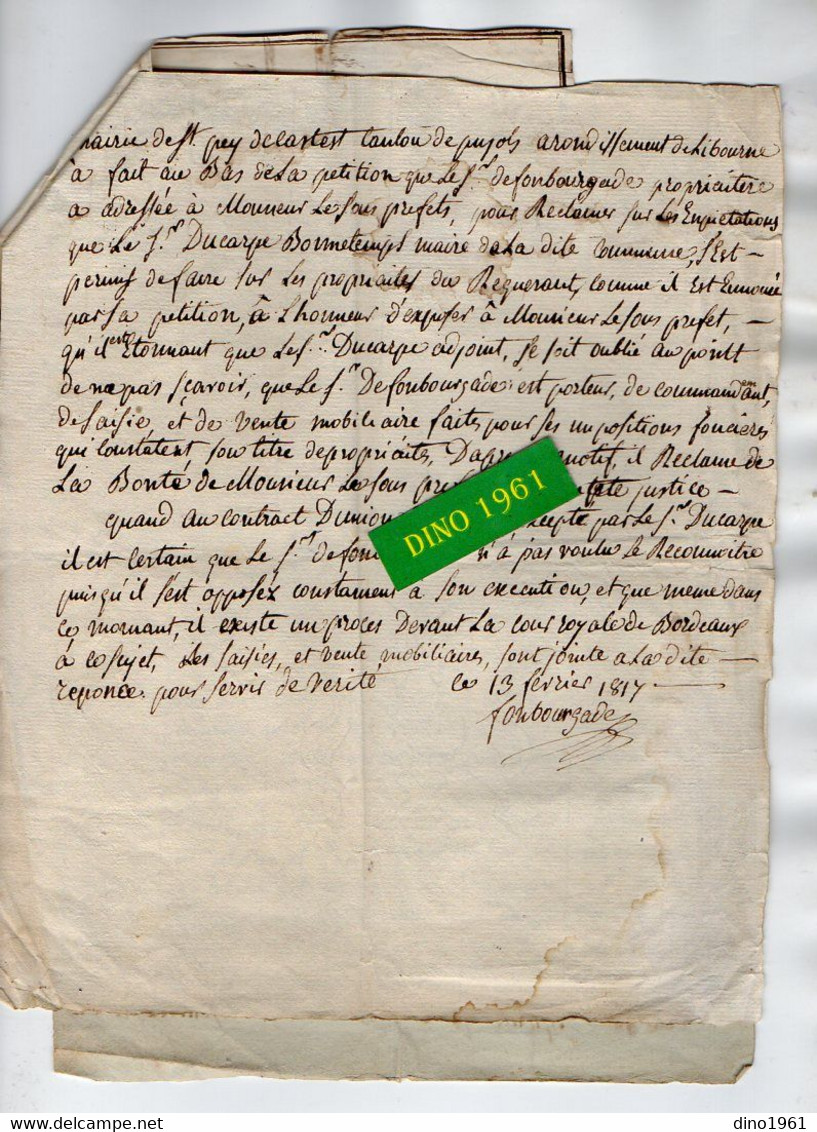 mairie de St. pey de castest canton de pujols arondissement de Libourne
à fait au Bas de La petition que Le Sr. de fonbourgade proprieitere
a adressée à Monsieur Le sous prefets, pour Reclamer sur Les Enpietations
que Le Sr. Ducarpe Bonnetemps maire de La dite commune, s'Est —
permis de faire sur Les proprietes du Requerant, comme il Est Ennoncé
par sa petition, à L'honneur d'exposer à Monsieur Le sous prefet, —
qu'il est Etonnant que Le Sr. Ducarpe adjoint, se soit oublié au point
de ne pas sçavoir, que Le Sr. De fonbourgade est porteur, de commandement,
de saisie, et de vente mobiliaire faites, pour ses impositions foncieres
qui constatent son titre de proprietés, D'apres motif, il Reclame de
La Bonté de Monsieur Le sous justice —
quand au contract D'union par Le Sr. Ducarpe
il est certain que Le Sr. de n'à pas voulu Le Reconnoitre
puisqu'il s'est opposéz constament à son execution, et que meme dans
ce momant, il existe un proces Devant La cour royale de Bordeaux
à ce sujet, Les saisies, et vente mobiliaires, sont jointe a La dite —
reponce pour servir de verité ce 13 fevrier 1817 —
fonbourgade
DINO 1961
delcampe.net
dino1961